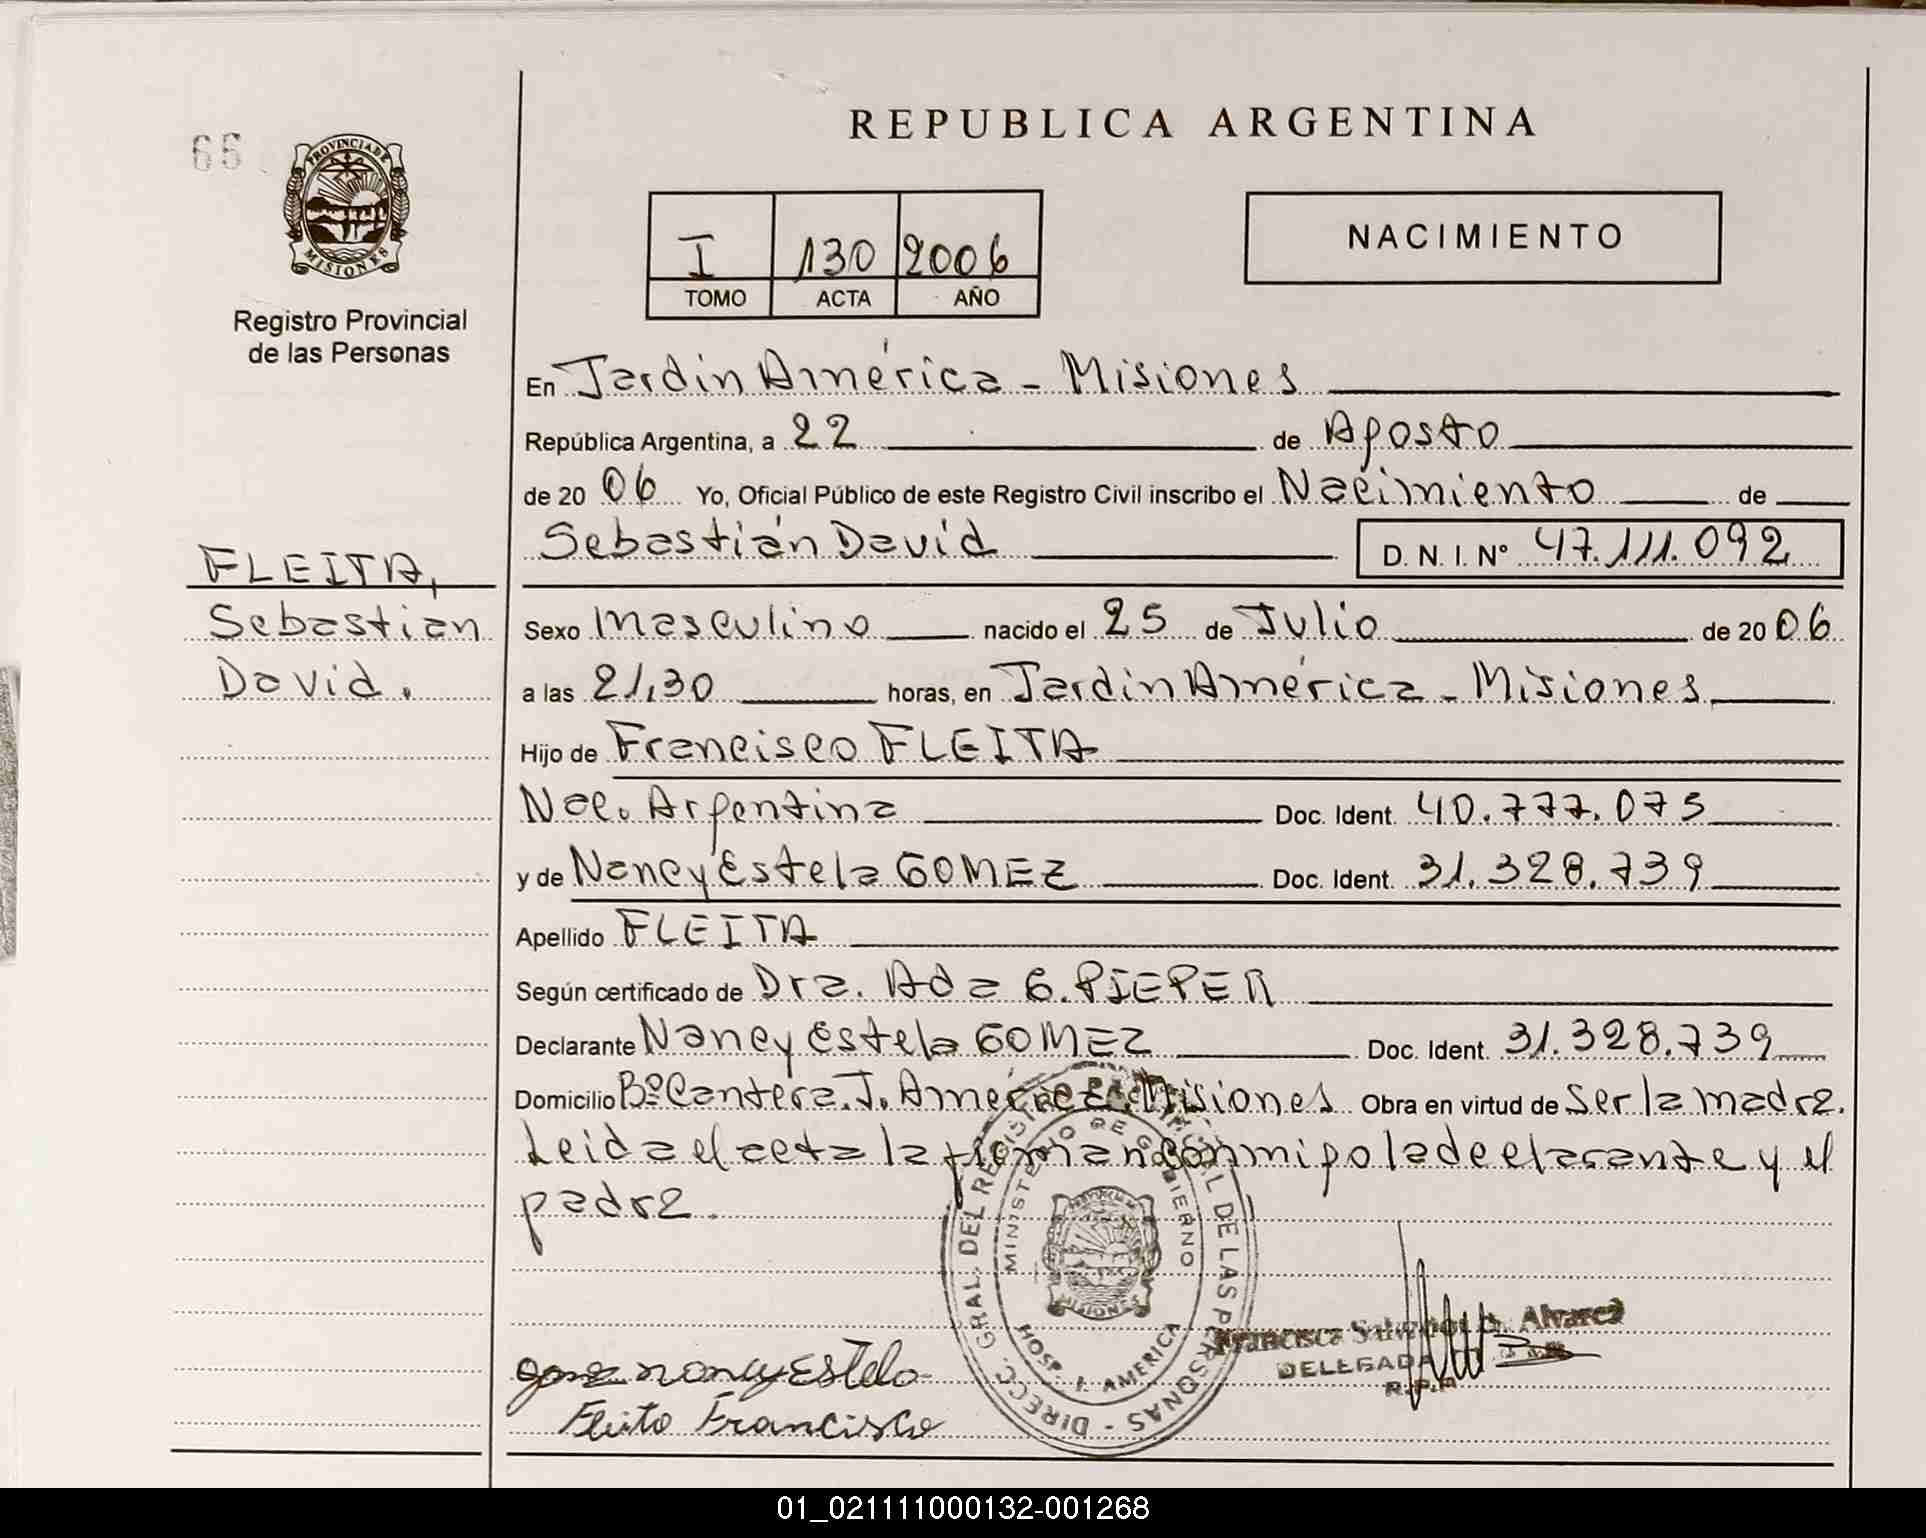 66
PROVINCIA DE
MISIONES
Registro Provincial
de las Personas
REPUBLICA ARGENTINA
I 130 2006
TOMO ACTA AÑO
NACIMIENTO
En Jardín América - Misiones
República Argentina, a 22 de Agosto
de 20 06 Yo, Oficial Público de este Registro Civil inscribo el Nacimiento de
Sebastián David D. N. I. Nº 47.111.092
FLEITA,
Sebastián
David.
Sexo Masculino nacido el 25 de Julio de 20 06
a las 21,30 horas, en Jardín América - Misiones
Hijo de Francisco FLEITA
Nac. Argentina Doc. Ident. 40.777.075
y de Nancy Estela GOMEZ Doc. Ident. 31.328.739
Apellido FLEITA
Según certificado de Dra. Ada G. PIEPER
Declarante Nancy Estela GOMEZ Doc. Ident. 31.328.739
Domicilio Bº Cantera. J. América. Misiones Obra en virtud de Ser la madre.
Leida el acta la firman conmigo la declarante y el
padre.
DIRECC. GRAL. DEL REGISTRO DE LAS PERSONAS
MINISTERIO DE GOBIERNO
MISIONES
HOSP. J. AMERICA
Francisca Alvarez
DELEGADA
R.P.P
Nancy Estela
Fleita Francisco
01_021111000132-001268